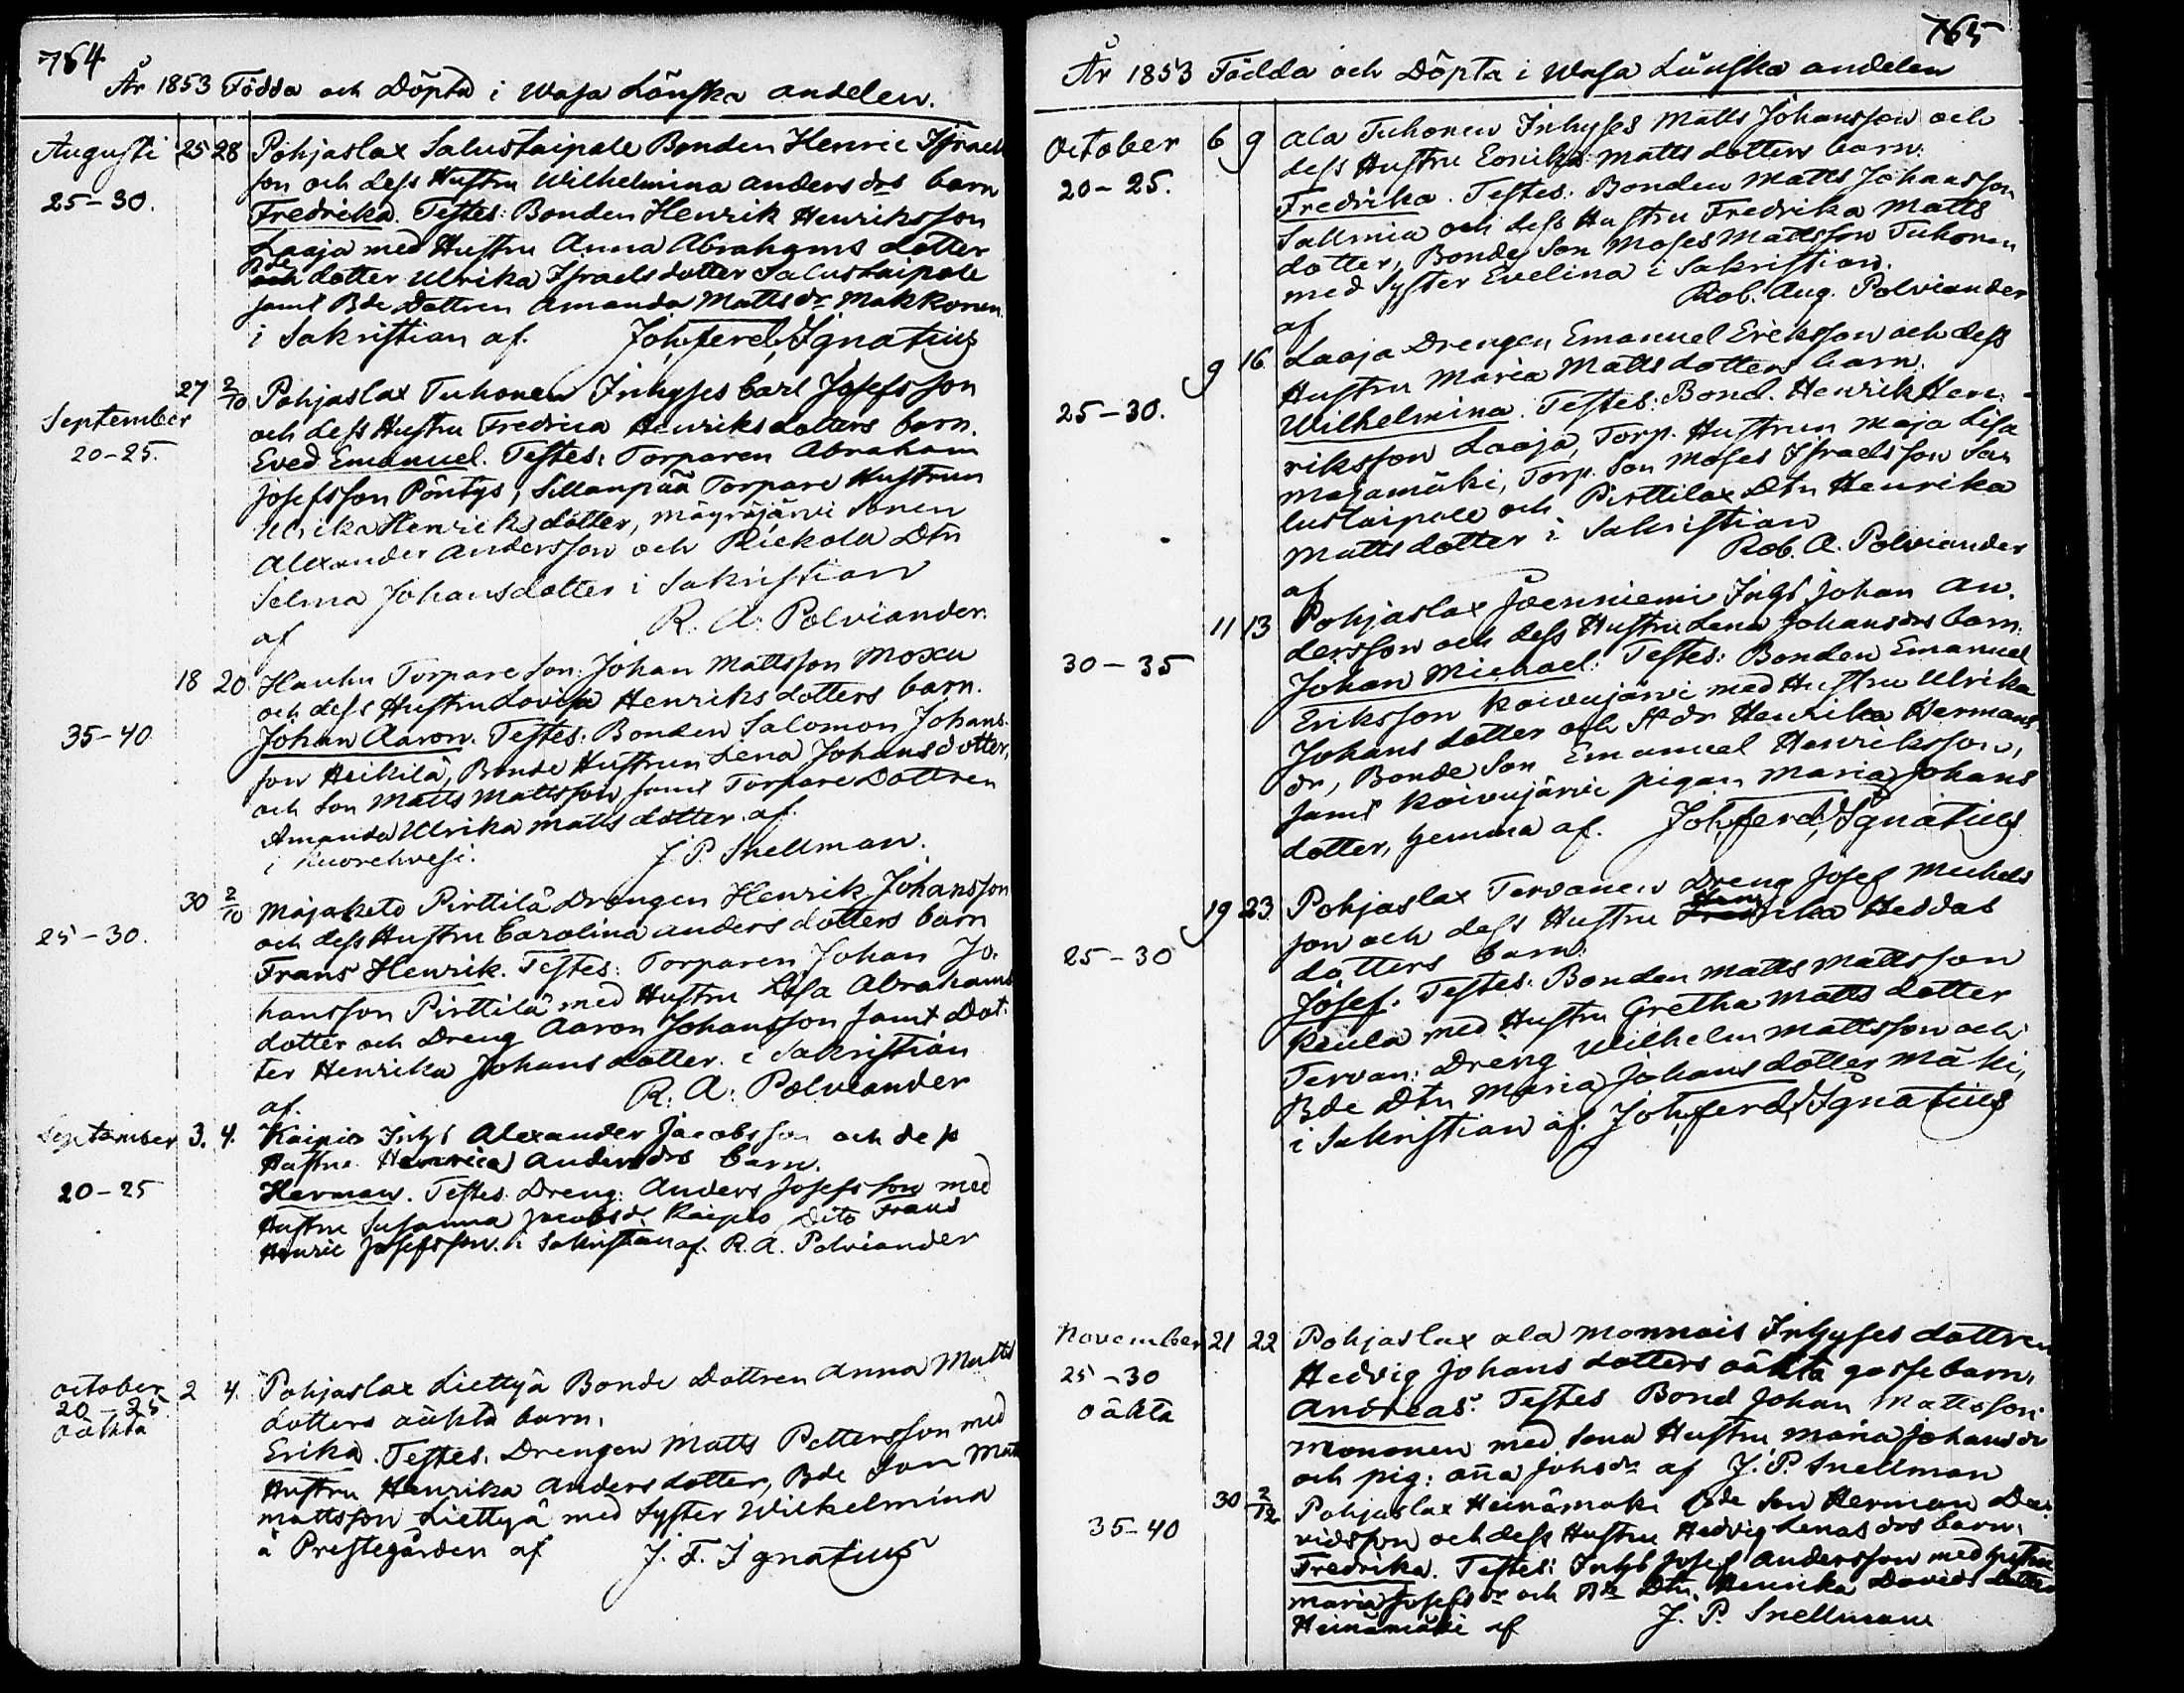 764
År 1853 Födda och Döpta i Wasa Länska andelen.
Augusti 25 28 Pohjaslax Salustaipale Bonden Henric Israels
25-30. son och dess Hustru Wilhelmina anders drs barn
Fredrika. Testes: Bonden Henrik Henriksson
Laaja med Hustru Anna Abrahams dotter
och dotter Ulrika Israels dotter Salustaipale
samt Bde Dottren Amanda Matts dr Makkonen
i Sakristian af. Joh, ferd, Ignatius
27 2/10 Pohjaslax Tuhonen Inhyses Carl Josefsson
September och dess Hustru Fredrica Henriks dotters barn.
20-25. Eved Emanuel. Testes: Torparen Abraham
Josefsson Pöntys, Sillanpää Torpare Hustrun
Ulrika Henriks dotter, mäyräjärvi Sonen
Alexander Andersson och Riekola Dtn
Selma Johansdotter i Sakristian
af R. A. Polviander.
18 20 Hauhu Torpare Son: Johan Mattsson Moxu
och dess Hustru Lovisa Henriks dotters barn.
35-40 Johan Aaron. Testes: Bonden Salomon Johans
son Heikilä, Bonde Hustrun Lena Johans dotter,
och Son Matts Mattsson samt Torpare Dottren
Amanda Ulrika Matts dotter. af.
i Kuorehvesi. J. P. Snellman.
30 2/10 Majaketo Pirttilä Drengen Henrik Johansson
25-30. och dess Hustru Carolina anders dotters barn
Frans Henrik. Testes: Torparen Johan Jo.
hansson Pirttilä med Hustru Lisa Abrahams
dotter och Dreng Aaron Johansson samt Dot.
ter Henrika Johans dotter. i Sakristian
af. R. A. Polviander
September 3. 4. Kaipio Inhs Alexander Jacobsson och dess
Hustru Henrica Anders drs barn.
20-25 Herman. Testes Dreng: Anders Josefsson med
Hustru Susanna Jacobs dr Kaipio dito Frans
Henric Josefsson. i Sakristian af. R. A. Polviander
october 2 4. Pohjaslax Liettyä Bonde Dottren Anna Matts
20-25. dotters oäkta barn.
oäkta
Erika. Testes. Drengen Matts Pettersson med
Hustru Henrika Anders dotter, Bde Son Matts
mattsson Liettyä med Syster Wilhelmina
å Prestegården af J. F. Ignatius
765
År 1853 Födda och Döpta i Wasa Länska andelen
October 6 9 Ala Tuhonen Inhyses Matts Johansson och
dess Hustru Matts dotters barn.
20-25. Fredrika. Testes: Bonden Matts Johansson
Sallmia och dess Hustru Fredrika Matts
dotter, Bonde Son Moses Mattsson Tuhonen
med Syster Evelina i Sakristian.
af Rob. Aug. Polviander
9 16. Laaja Drengen Emanuel Eriksson och dess
Hustru Maria Matts dotters barn.
25-30. Wilhelmina. Testes: Bond. Henrik Hen.
riksson Laaja, Torp. Hustrun Maja Lisa
Majamäki, Torp. Son Moses Israelsson Sa
lustaipale och Pirttilax Dtn Henrika
Matts dotter i Sakristian
af Rob. A. Polviander
11 13 Pohjaslax Joenniemi Inhs Johan An.
dersson och dess Hustru Lena Johans drs barn.
30-35 Johan Michael: Testes: Bonden Emanuel
Eriksson Koivujärvi med Hustru Ulrika
Johans dotter och dr Henrika Hermans
dr, Bonde Son Emanuel Henriksson,
samt Koivujärvi pigan Maria Johans
dotter, hemma af. Joh, ferd, Ignatius
19 23. Pohjaslax Tervanen Dreng Josef Michels
son och dess Hustru Henrika Heddas
25-30 dotters barn.
Josef. Testes: Bonden Matts Mattsson
Keula med Hustru Gretha Matts dotter
Tervan: Dreng Wilhelm Mattsson och
Bde Dtn Maria Johans dotter Mäki,
i Sakristian af. Joh, ferd, Ignatius
November 21 22 Pohjaslax ala Monnais Inhyses dottren
25-30 Hedvig Johans dotters oäkta gossebarn.
oäkta Andreas. Testes Bond Johan Mattsson
Mononen med sena Hustru Maria Johans dr
och pig: Anna Johs dr af J. P. Snellman
30 2/12 Pohjaslax Heinämäki Bde Son Herman Da.
35-40 vidsson och dess Hustru Hedvig Lenas drs barn.
Fredrika. Testes: Inhs Josef Andersson med Hustru
Maria Josefs dr och Bde Dtn Henrika Davids dotter
Heinämäki af J. P. Snellman